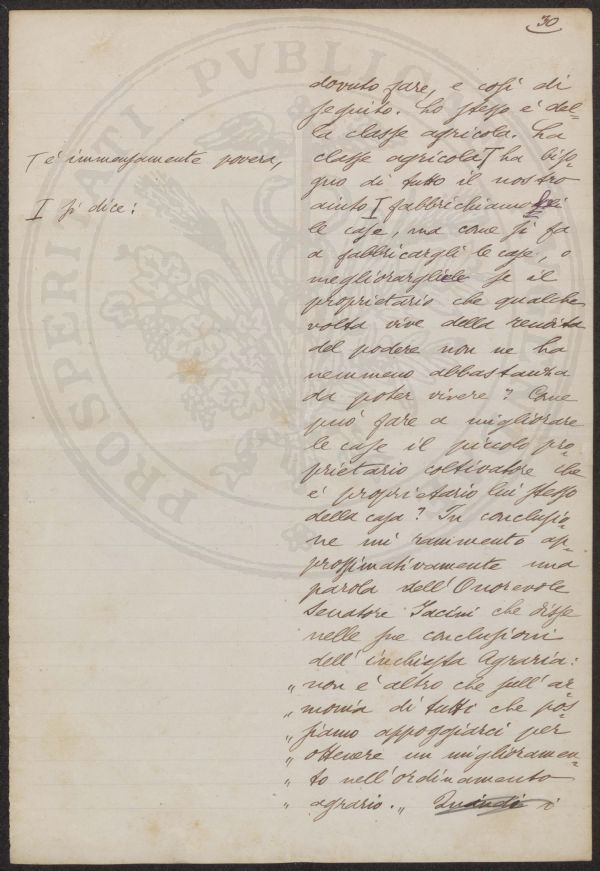 30
dovuto fare, e così di
seguito. Lo stesso è del=
la classe agricola. La
classe agricola T ha biso=
gno di tutto il nostro
aiuto I fabbrichiamo
le case, ma come si fa
a fabbricargli le case, o
megliorargliele se il
proprietario che qualche
volta vive della rendita
del podere non ne ha
nemmeno abbastanza
da poter vivere? Come
può fare a migliorare
le case il piccolo pro=
prietario coltivatore che
è proprietario lui stesso
della casa? In conclusio=
ne mi rammento ap=
prossimativamente una
parola dell'Onorevole
Senatore Jacini che disse
nelle sue conclusioni
dell'inchiesta Agraria:
„ non è altro che sull'ar=
„ monia di tutti che pos=
„ siamo appoggiarci per
„ ottenere un miglioramen=
„ to nell'ordinamento
„ agrario. „ Quindi i
T è immensamente povera,
I si dice:
PROSPERITATI PVBLIC